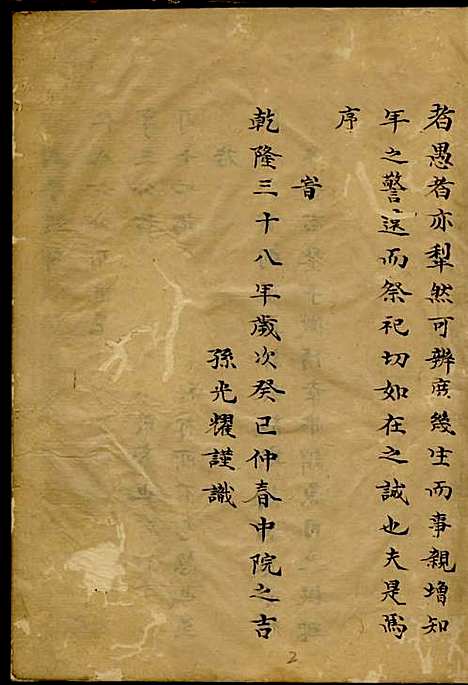 者愚者亦犁然可辨庶幾生而事親增知
年之警退而祭祀切如在之誠也夫是為
序
旹
乾隆三十八年歲次癸巳仲春中院之吉
孫光耀謹識
2